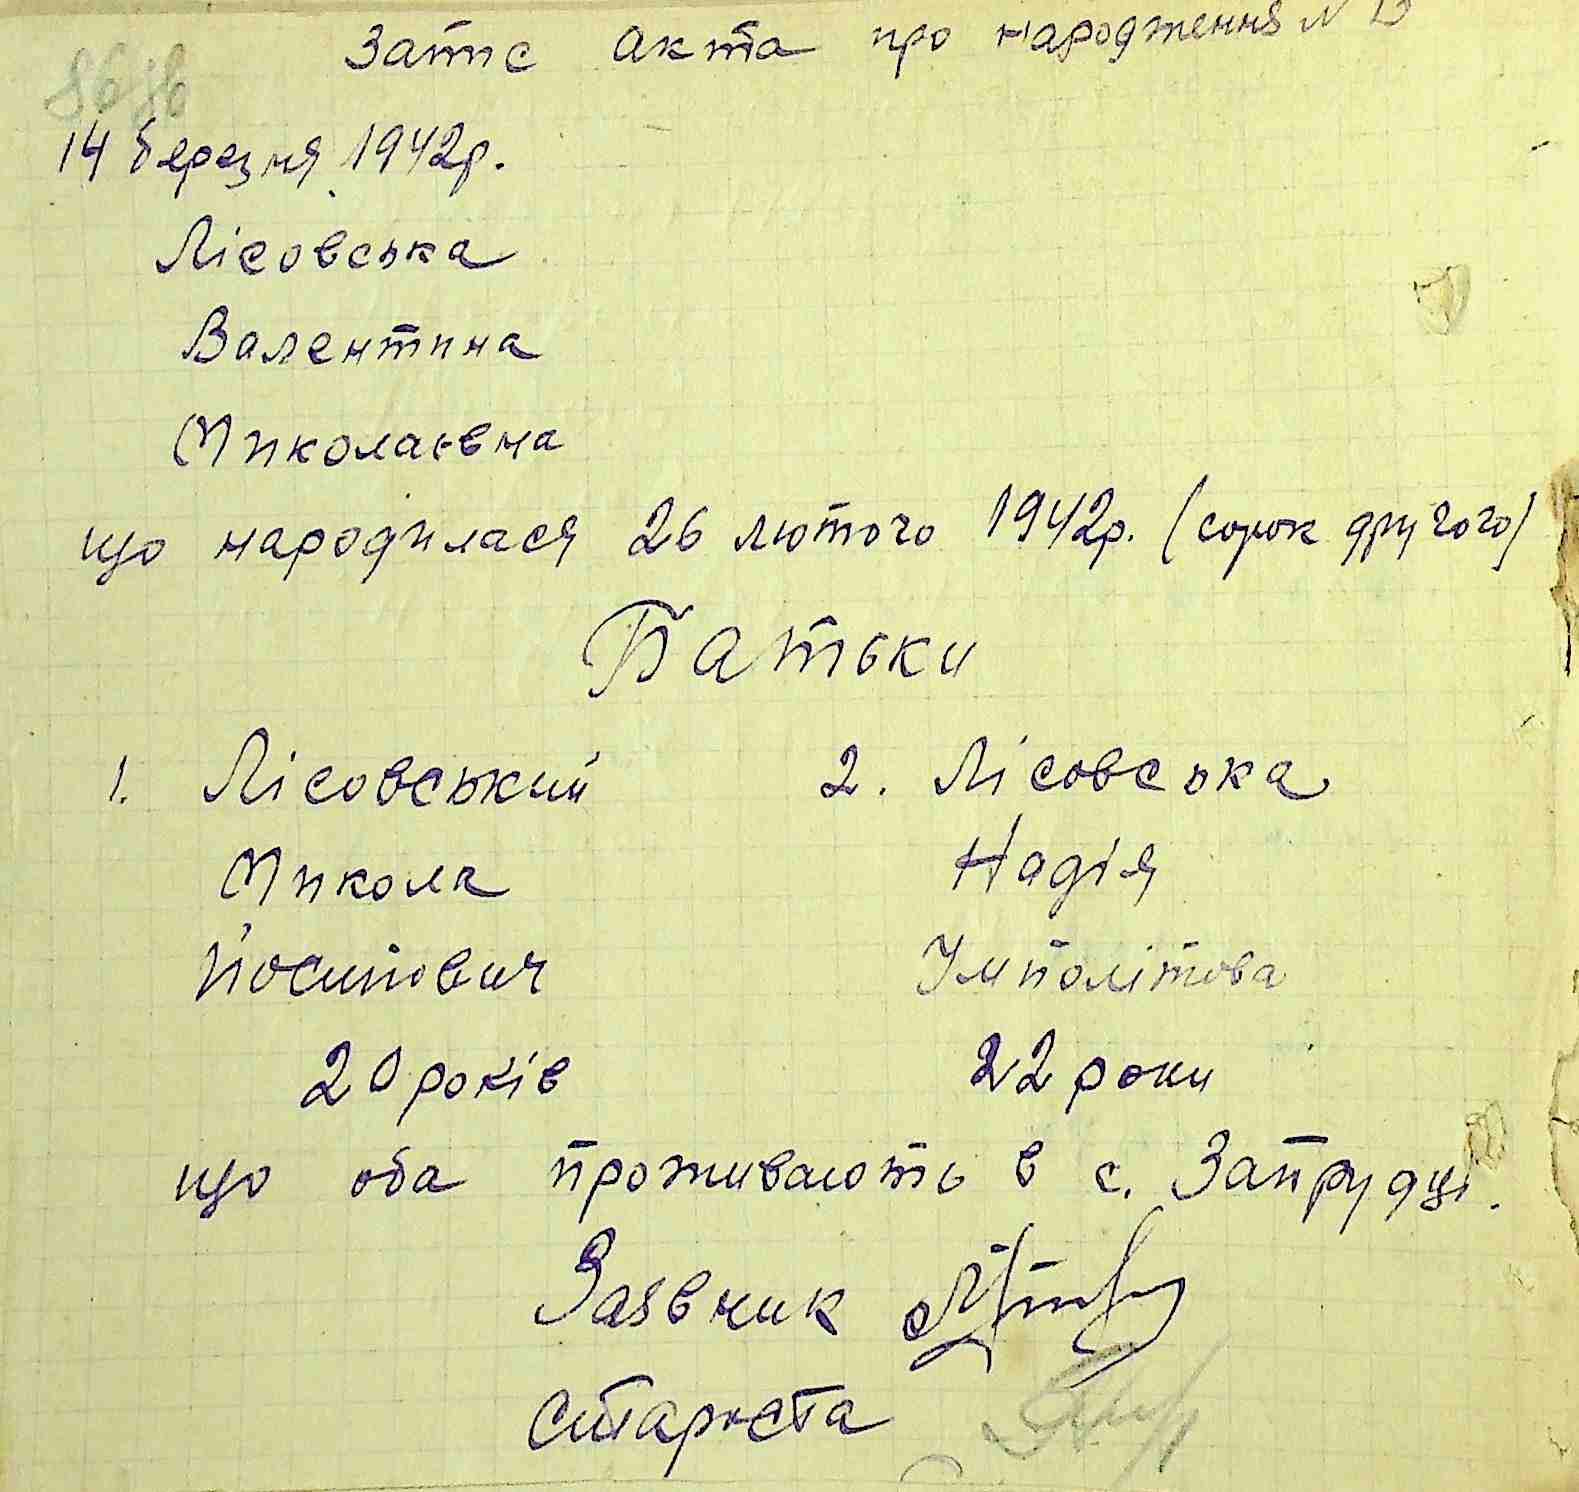 Запис акта про народження N 13
14 березня 1942р.
Лісовська
Валентина
Миколаєвна
що народилася 26 лютого 1942р. (сорок другого)
Батьки
1. Лісовський 2. Лісовська
Микола Надія
Йосипович Імполітова
20 років 22 роки
що оба проживають в с. Запрудці.
Заявник
Староста